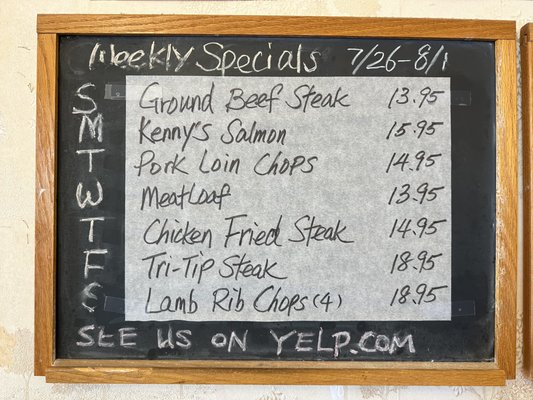 Weekly Specials 7/26-8/1
S Ground Beef Steak 13.95
M Kenny's Salmon 15.95
T Pork Loin Chops 14.95
W Meatloaf 13.95
T Chicken Fried Steak 14.95
F Tri-Tip Steak 18.95
S Lamb Rib Chops (4) 18.95
SEE US ON YELP.COM